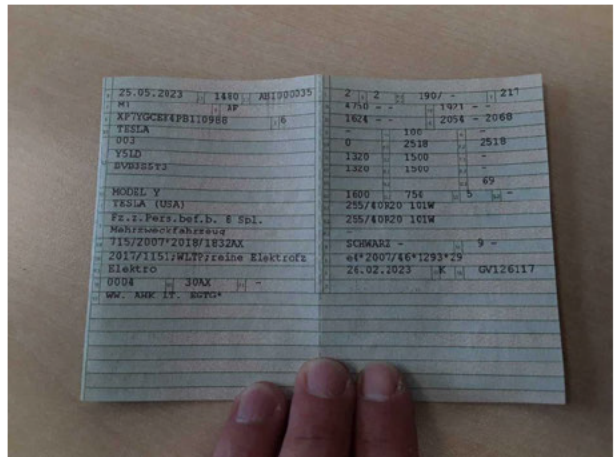 25.05.2023 1480 AB1000035
M1 AF
6
TESLA
003
Y5LD
MODEL Y
TESLA (USA)
Fz.z.Pers.bef.b. 8 Spl.
Mehrzweckfahrzeug
715/2007*2018/1832AX
2017/1151;WLTP;reine Elektrofz
Elektro
0004 30AX -
WW. AHK LT. EGTG*
2 2 1907 - 217
4750 - - 1921 - -
1624 - - 2054 - 2068
- 100 -
0 2518 2518
1320 1500 -
1320 1500 -
69
1600 750 5 -
255/40R20 101W
255/40R20 101W
-
SCHWARZ - 9 -
e4*2007/46*1293*29
26.02.2023 K GV126117